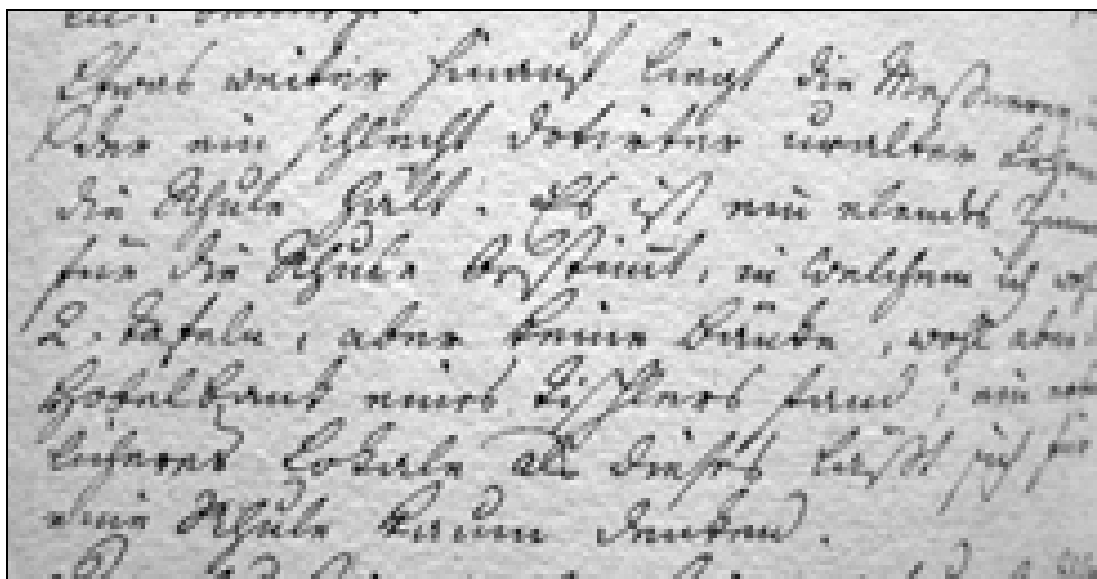 Etwas weiter hinauf liegt die Meßnerey,
der ein schlecht dotirter uralter
die Schule hält. Es ist ein elendes
für die Schule bestimt, in welchem ich
2. Tafeln, aber keine Bänke, wohl aber
Hobelbank eines Tischlers fand, ein
licheres Lokale als dieses läßt sich für
eine Schule kaum denken.